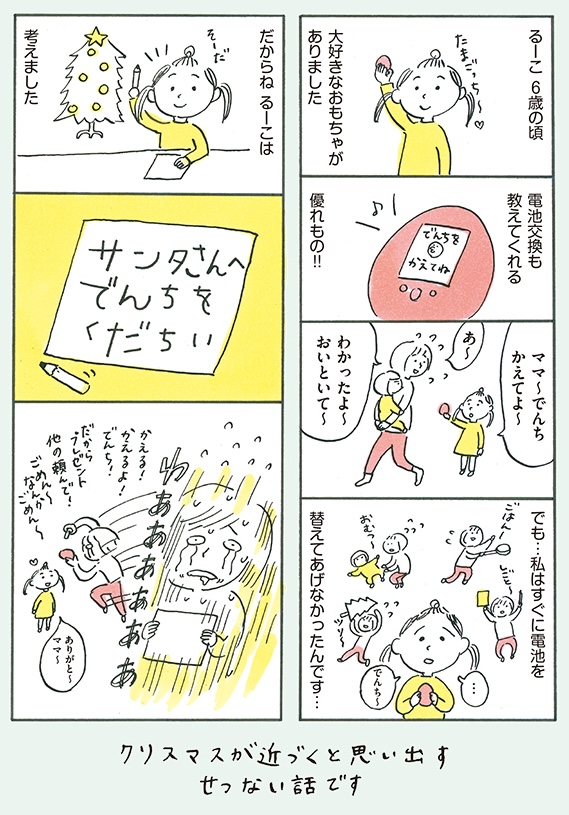 るーこ 6歳の頃
たまごっち〜♡
大好きなおもちゃが
ありました
電池交換も
教えてくれる
でんちを
かえてね
優れもの!!
ママ〜でんち
かえてよ〜
あ〜
わかったよ〜
おいといて〜
でも…私はすぐに電池を
替えてあげなかったんです…
ごはん
おむつ〜
レジ〜
…
でんち〜
だからね るーこは
そーだ
考えました
サンタさんへ
でんちを
くだちい
わああああああぁ
かえる!
かえるよ!
でんち!
だから
プレゼント
他の頼んで!
ごめん〜
なんか
ごめん〜
ありがと〜
ママ〜
クリスマスが近づくと思い出す
せつない話です